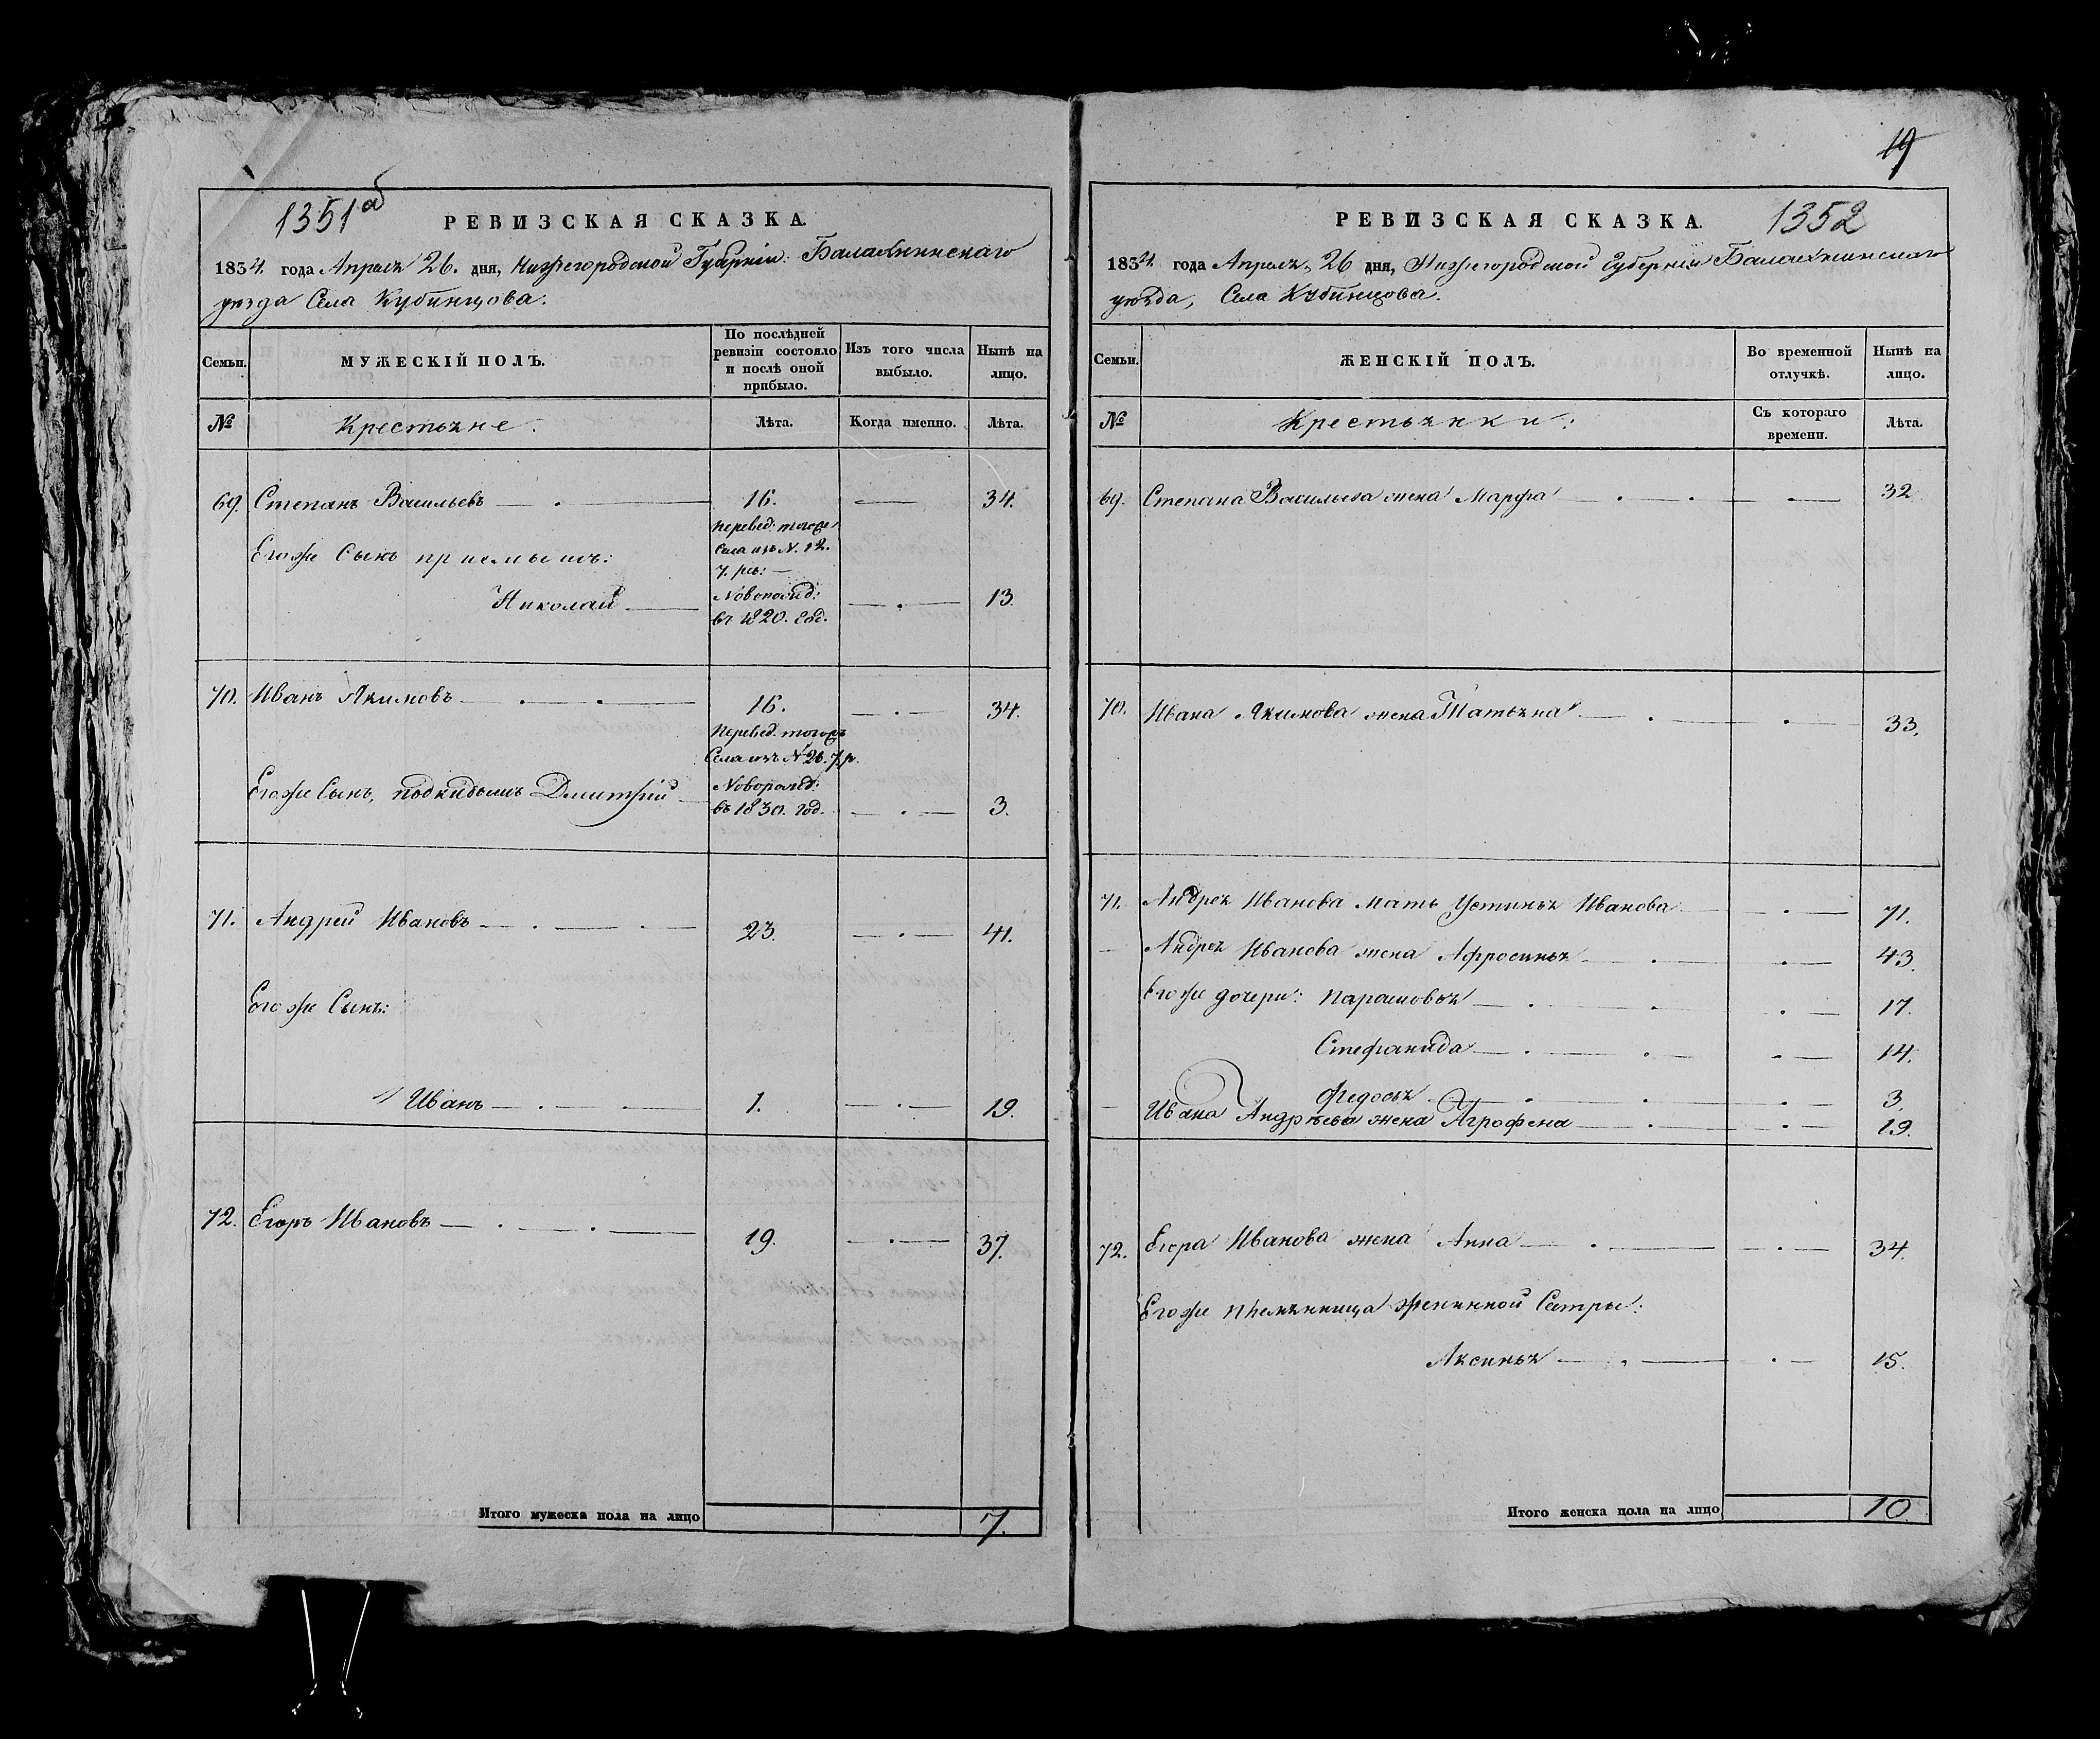 1351об
РЕВИЗСКАЯ СКАЗКА.
1834. года Апреля 26. дня, Нижегородской Губерніи: Балахнинскаго
уезда Села Кубинцова.
Семьи.
МУЖЕСКІЙ ПОЛЪ.
По послѣдней ревизіи состояло и послѣ оной прибыло.
Изъ того числа выбыло.
Нынѣ на лицо.
№
Крестьяне.
Лѣта.
Когда именно.
Лѣта.
69. Степанъ Васильевъ 16. 34.
Перевед: тогоже
Села изъ N. 12.
7. рев: —
Егоже Сынъ приемышъ:
Николай 13.
въ 1820. год.
70. Иванъ Якимовъ 16. 34.
Перевед. тогожъ
Села изъ N 26. 7. р.
Новорожд:
Егоже Сынъ, подкидышъ Дмитрій 3.
въ 1830. год.
71. Андрей Ивановъ 23. 41.
Егоже Сынъ:
Иванъ 1. 19.
72. Егоръ Ивановъ 19. 37.
Итого мужеска пола на лицо 7.
19
РЕВИЗСКАЯ СКАЗКА. 1352
1834. года Апреля, 26 дня, Нижегородской Губерніи Балахнинскаго
уѣзда, Села Кубинцова.
Семьи.
ЖЕНСКІЙ ПОЛЪ.
Во временной отлучкѣ.
Нынѣ на лицо.
№
Крестьянки:
Съ котораго времени.
Лѣта.
69. Степана Васильева жена Марфа 32.
70. Ивана Якимова жена Татьяна 33.
71. Андрея Иванова мать Устинья Иванова 71.
Андрея Иванова жена Афросинья 43.
Егоже дочери: Парасковья 17.
Стефанида 14.
Федосья 3.
Ивана Андрѣева жена Агрофена 19.
72. Егора Иванова жена Анна 34.
Егоже племянница жениной Сестры:
Аксинья 15.
Итого женска пола на лицо 10.